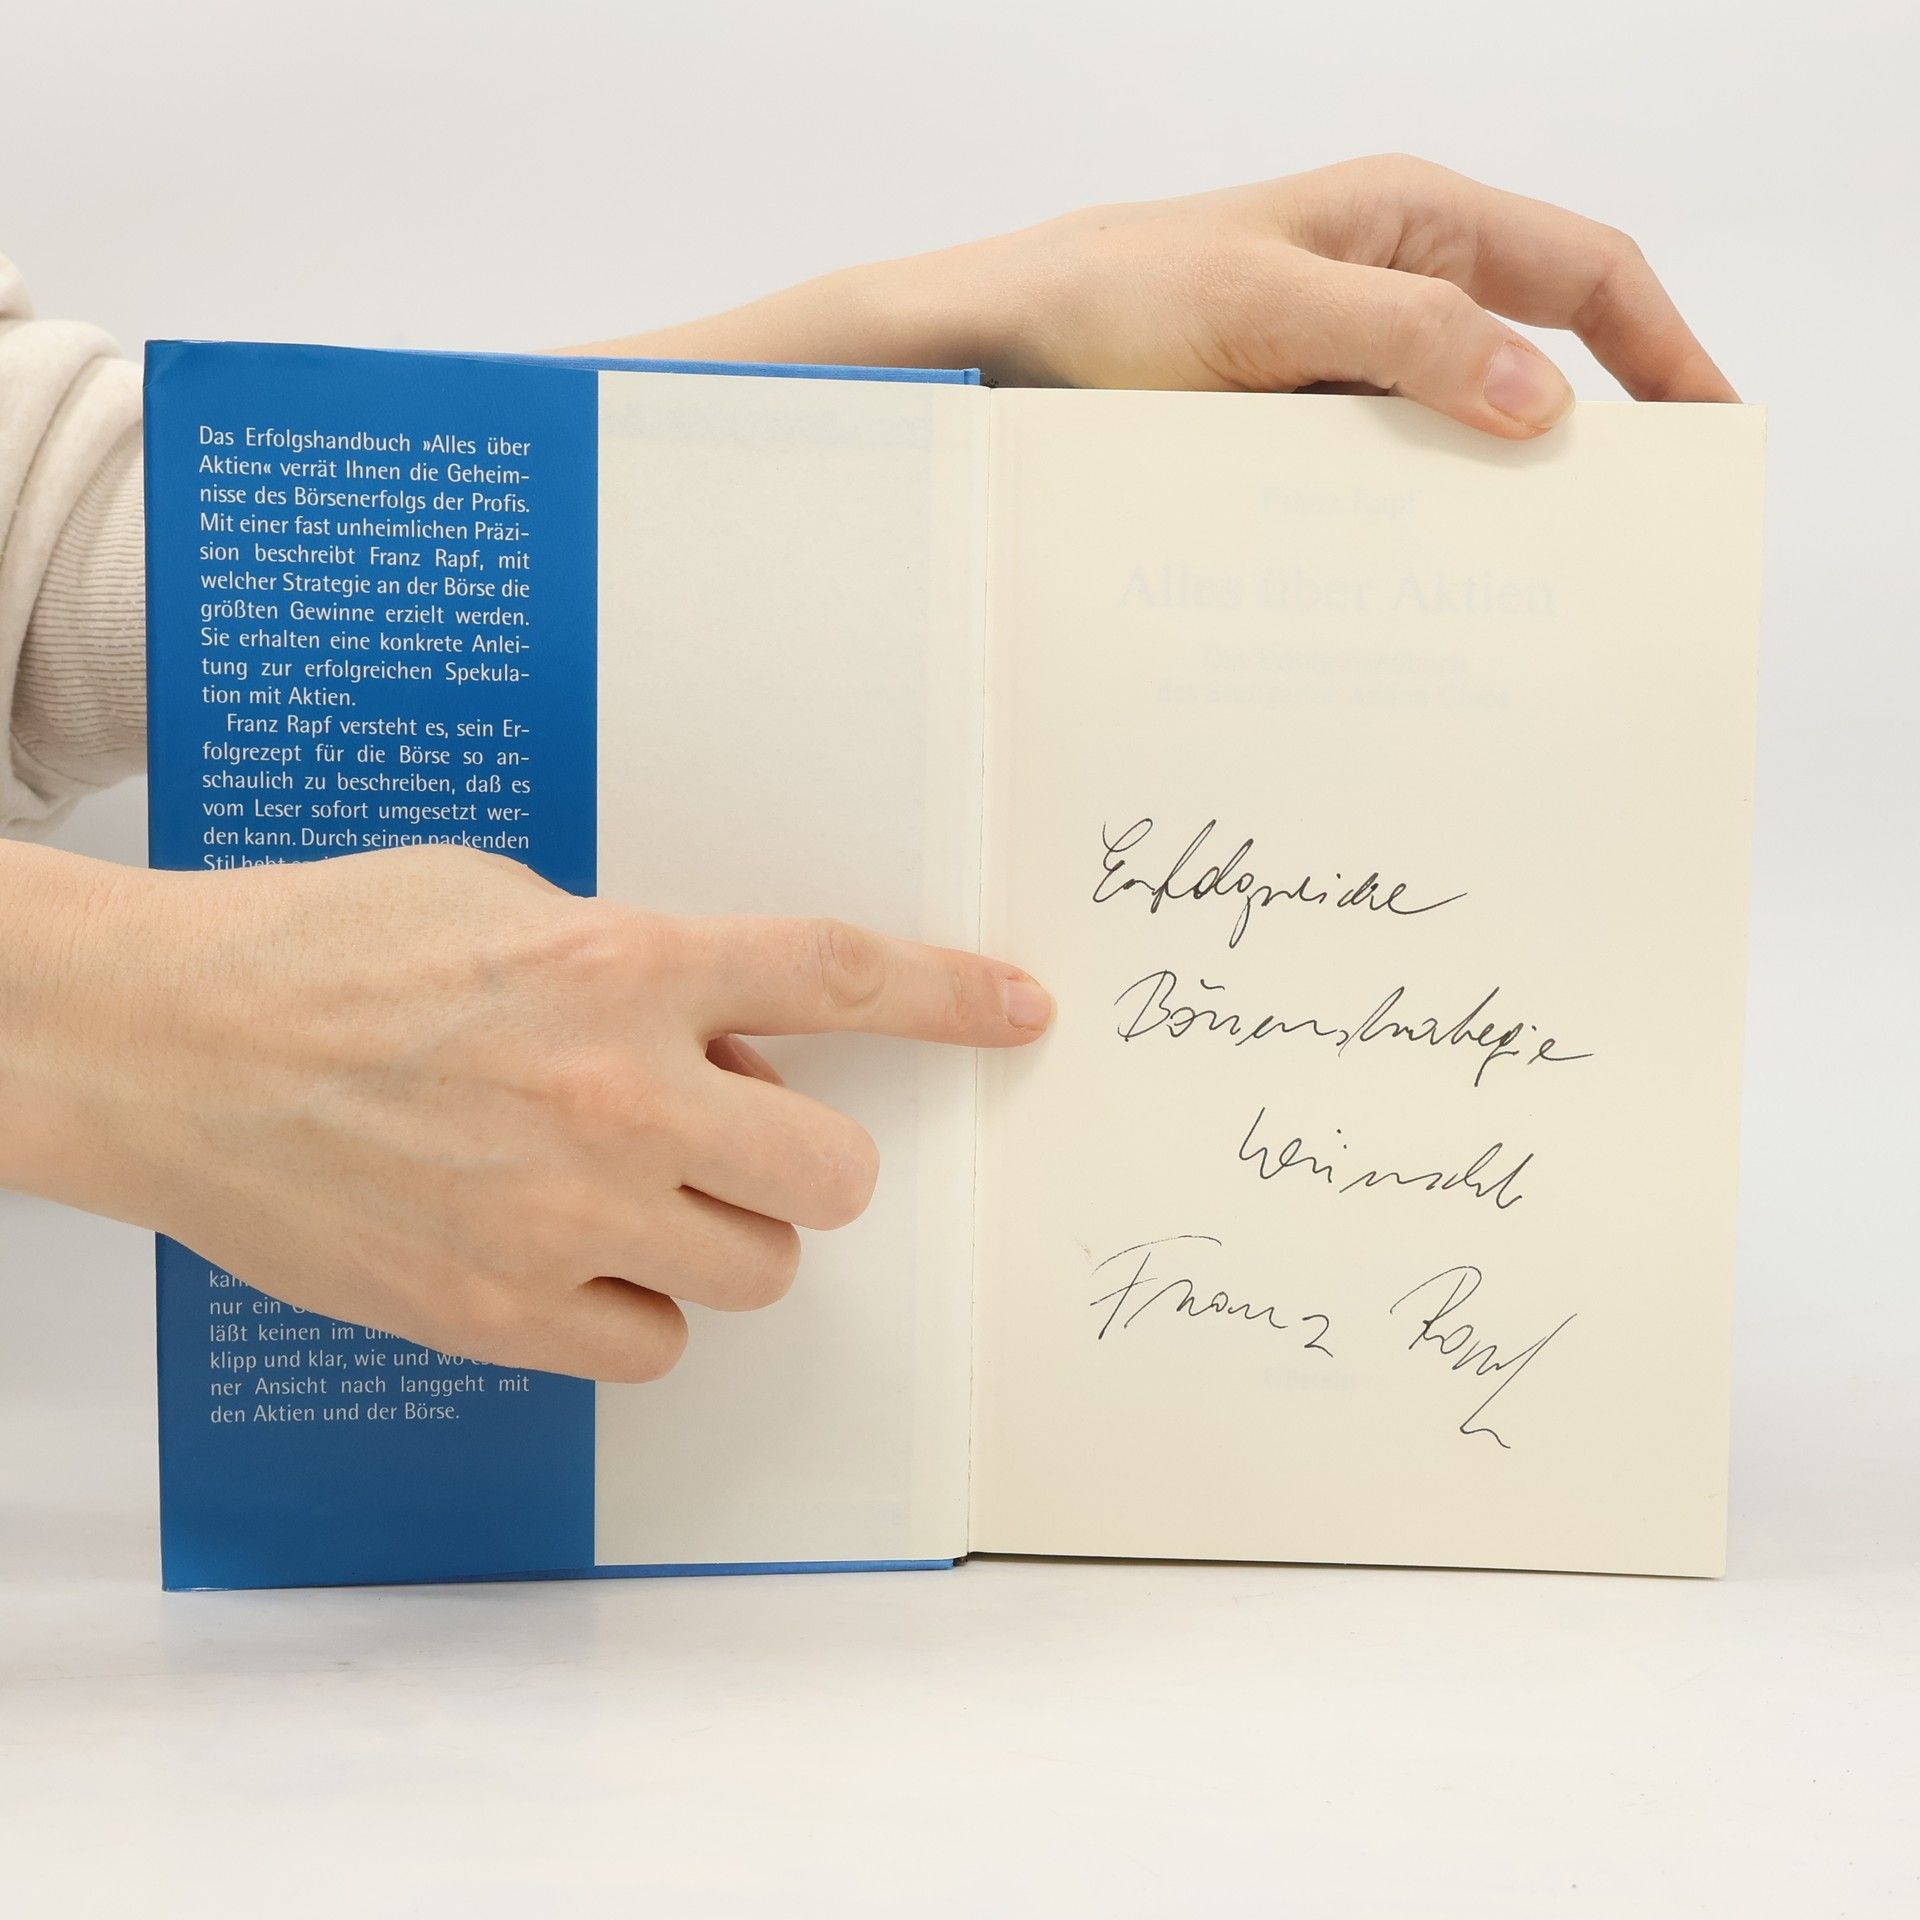 Das Erfolgshandbuch »Alles über
Aktien« verrät Ihnen die Geheim-
nisse des Börsenerfolgs der Profis.
Mit einer fast unheimlichen Präzi-
sion beschreibt Franz Rapf, mit
welcher Strategie an der Börse die
größten Gewinne erzielt werden.
Sie erhalten eine konkrete Anlei-
tung zur erfolgreichen Spekula-
tion mit Aktien.
Franz Rapf versteht es, sein Er-
folgrezept für die Börse so an-
schaulich zu beschreiben, daß es
vom Leser sofort umgesetzt wer-
den kann. Durch seinen packenden
Stil hebt
nur ein
läßt keinen im
klipp und klar, wie und wo
ner Ansicht nach langgeht mit
den Aktien und der Börse.
Franz Rapf
Alles über Aktien
Erfolgreiche
Börsenstrategie
wünscht
Franz Rapf